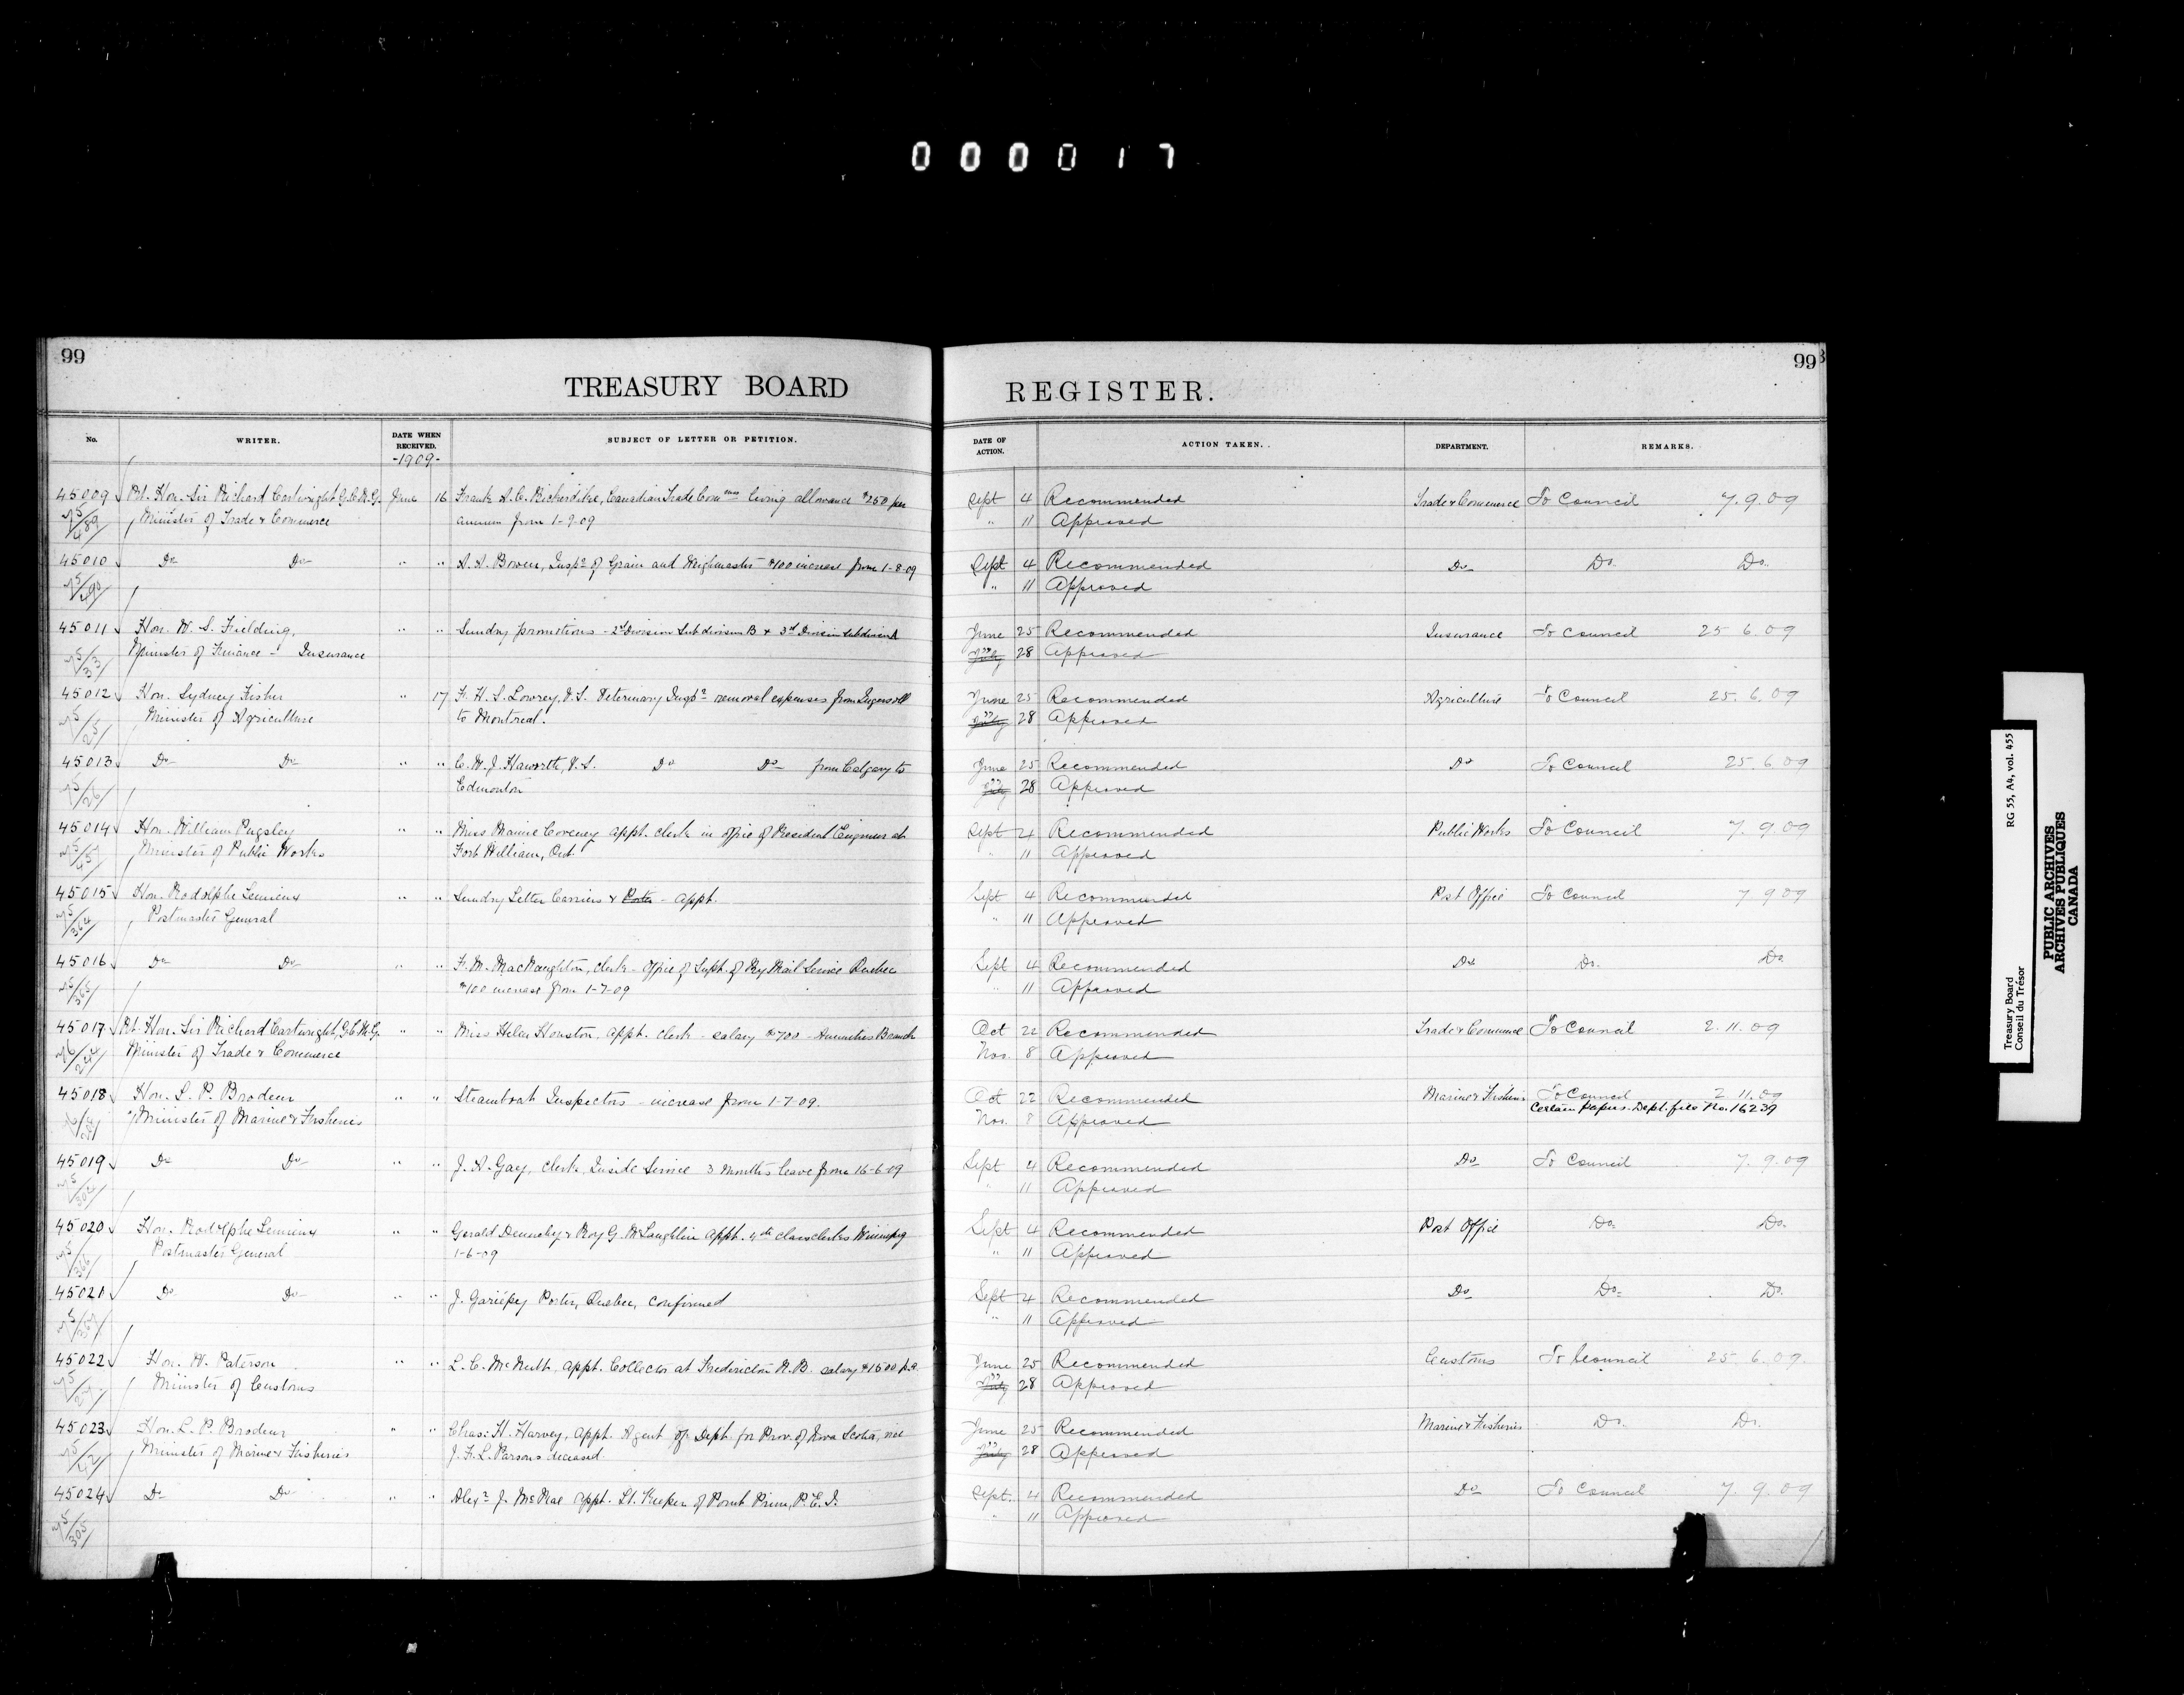 000017
99
TREASURY BOARD
No.
WRITER.
DATE WHEN RECEIVED.
-1909-
SUBJECT OF LETTER OR PETITION.
45009 Rt. Hon. Sir Richard Cartwright G.C.M.G. June 16 Frank A.C. Bickerdike, Canadian Trade Comm living allowance $250 per
Minister of Trade & Commerce annum from 1-9-09
45010 Do Do " " A.A. Bowen, Inspr of Grain and Weighmaster $100 increase from 1-8-09
45011 Hon. W. S. Fielding, " " Sundry promotions - 2d Division Subdivision B & 3rd Division Subdivision A
75/33 Minister of Finance - Insurance
45012 Hon. Sydney Fisher " 17 F. H. S. Lowrey, V.S. Veterinary Inspr removal expenses from Ingersoll
75/25 Minister of Agriculture to Montreal.
45013 Do Do " " C. W. J. Haworth, V.S. Do Do from Calgary to
75/26 Edmonton
45014 Hon. William Pugsley " " Miss Mamie Coveney appt. clerk in office of Resident Engineer at
Minister of Public Works Fort William, Ont.
45015 Hon. Rodolphe Lemieux " " Sundry Letter Carriers & Porter - appt.
75/364 Postmaster General
45016 Do Do " " F. M. MacNaughton, clerk - office of Supt. of Ry Mail Service Quebec
75/365 $100 increase from 1-7-09
45017 Rt. Hon. Sir Richard Cartwright, G.C.M.G. " " Miss Helen Houston, appt. clerk - salary $700 - Annuities Branch
Minister of Trade & Commerce
45018 Hon. L. P. Brodeur " " Steamboat Inspectors - increase from 1-7-09.
Minister of Marine & Fisheries
45019 Do Do " " J. A. Gay, clerk, Inside Service 3 months leave from 16-6-09
75/302
45020 Hon. Rodolphe Lemieux " " Gerald Dennehy & Roy G. McLaughlin appt. 4th class clerks Winnipeg
75/366 Postmaster General 1-6-09
45021 Do Do " " J. Gariépy Porter, Quebec, confirmed
75/367
45022 Hon. W. Paterson " " L. C. McNutt, appt. Collector at Fredericton N.B. salary $1500 p.a.
75/27 Minister of Customs
45023 Hon. L. P. Brodeur " " Chas: H. Harvey, appt. Agent of Dept. for Prov. of Nova Scotia, vice
75/42 Minister of Marine & Fisheries J. F. L. Parsons deceased.
45024 Do Do " " Alexr J. McRae appt. Lt. Keeper of Point Prim, P.E.I.
75/305
99
REGISTER.
DATE OF ACTION.
ACTION TAKEN.
DEPARTMENT.
REMARKS.
Sept 4 Recommended Trade & Commerce To Council 7.9.09
" 11 Approved
Sept 4 Recommended Do Do. Do.
" 11 Approved
June 25 Recommended Insurance To Council 25 6.09
July " 28 Approved
June 25 Recommended Agriculture To Council 25.6.09
July " 28 Approved
June 25 Recommended Do To Council 25.6 09
July " 28 Approved
Sept 4 Recommended Public Works To Council 7.9.09
" 11 Approved
Sept 4 Recommended Post Office To Council 7 9 09
" 11 Approved
Sept 4 Recommended Do Do. Do
" 11 Approved
Oct 22 Recommended Trade & Commerce To Council 2.11.09
Nov. 8 Approved
Oct 22 Recommended Marine & Fisheries To Council 2 11.09
Certain papers. Dept. files No. 16239
Nov. 8 Approved
Sept 4 Recommended Do To Council 7.9.09
" 11 Approved
Sept 4 Recommended Post Office Do. Do.
" 11 Approved
Sept 4 Recommended Do Do. Do.
" 11 Approved
June 25 Recommended Customs To Council 25.6.09.
July " 28 Approved
June 25 Recommended Marine & Fisheries Do. Do.
July " 28 Approved
Sept. 4 Recommended Do To Council 7.9.09
" 11 Approved
Treasury Board RG 55, A4, vol. 455
Conseil du Trésor
PUBLIC ARCHIVES
ARCHIVES PUBLIQUES
CANADA